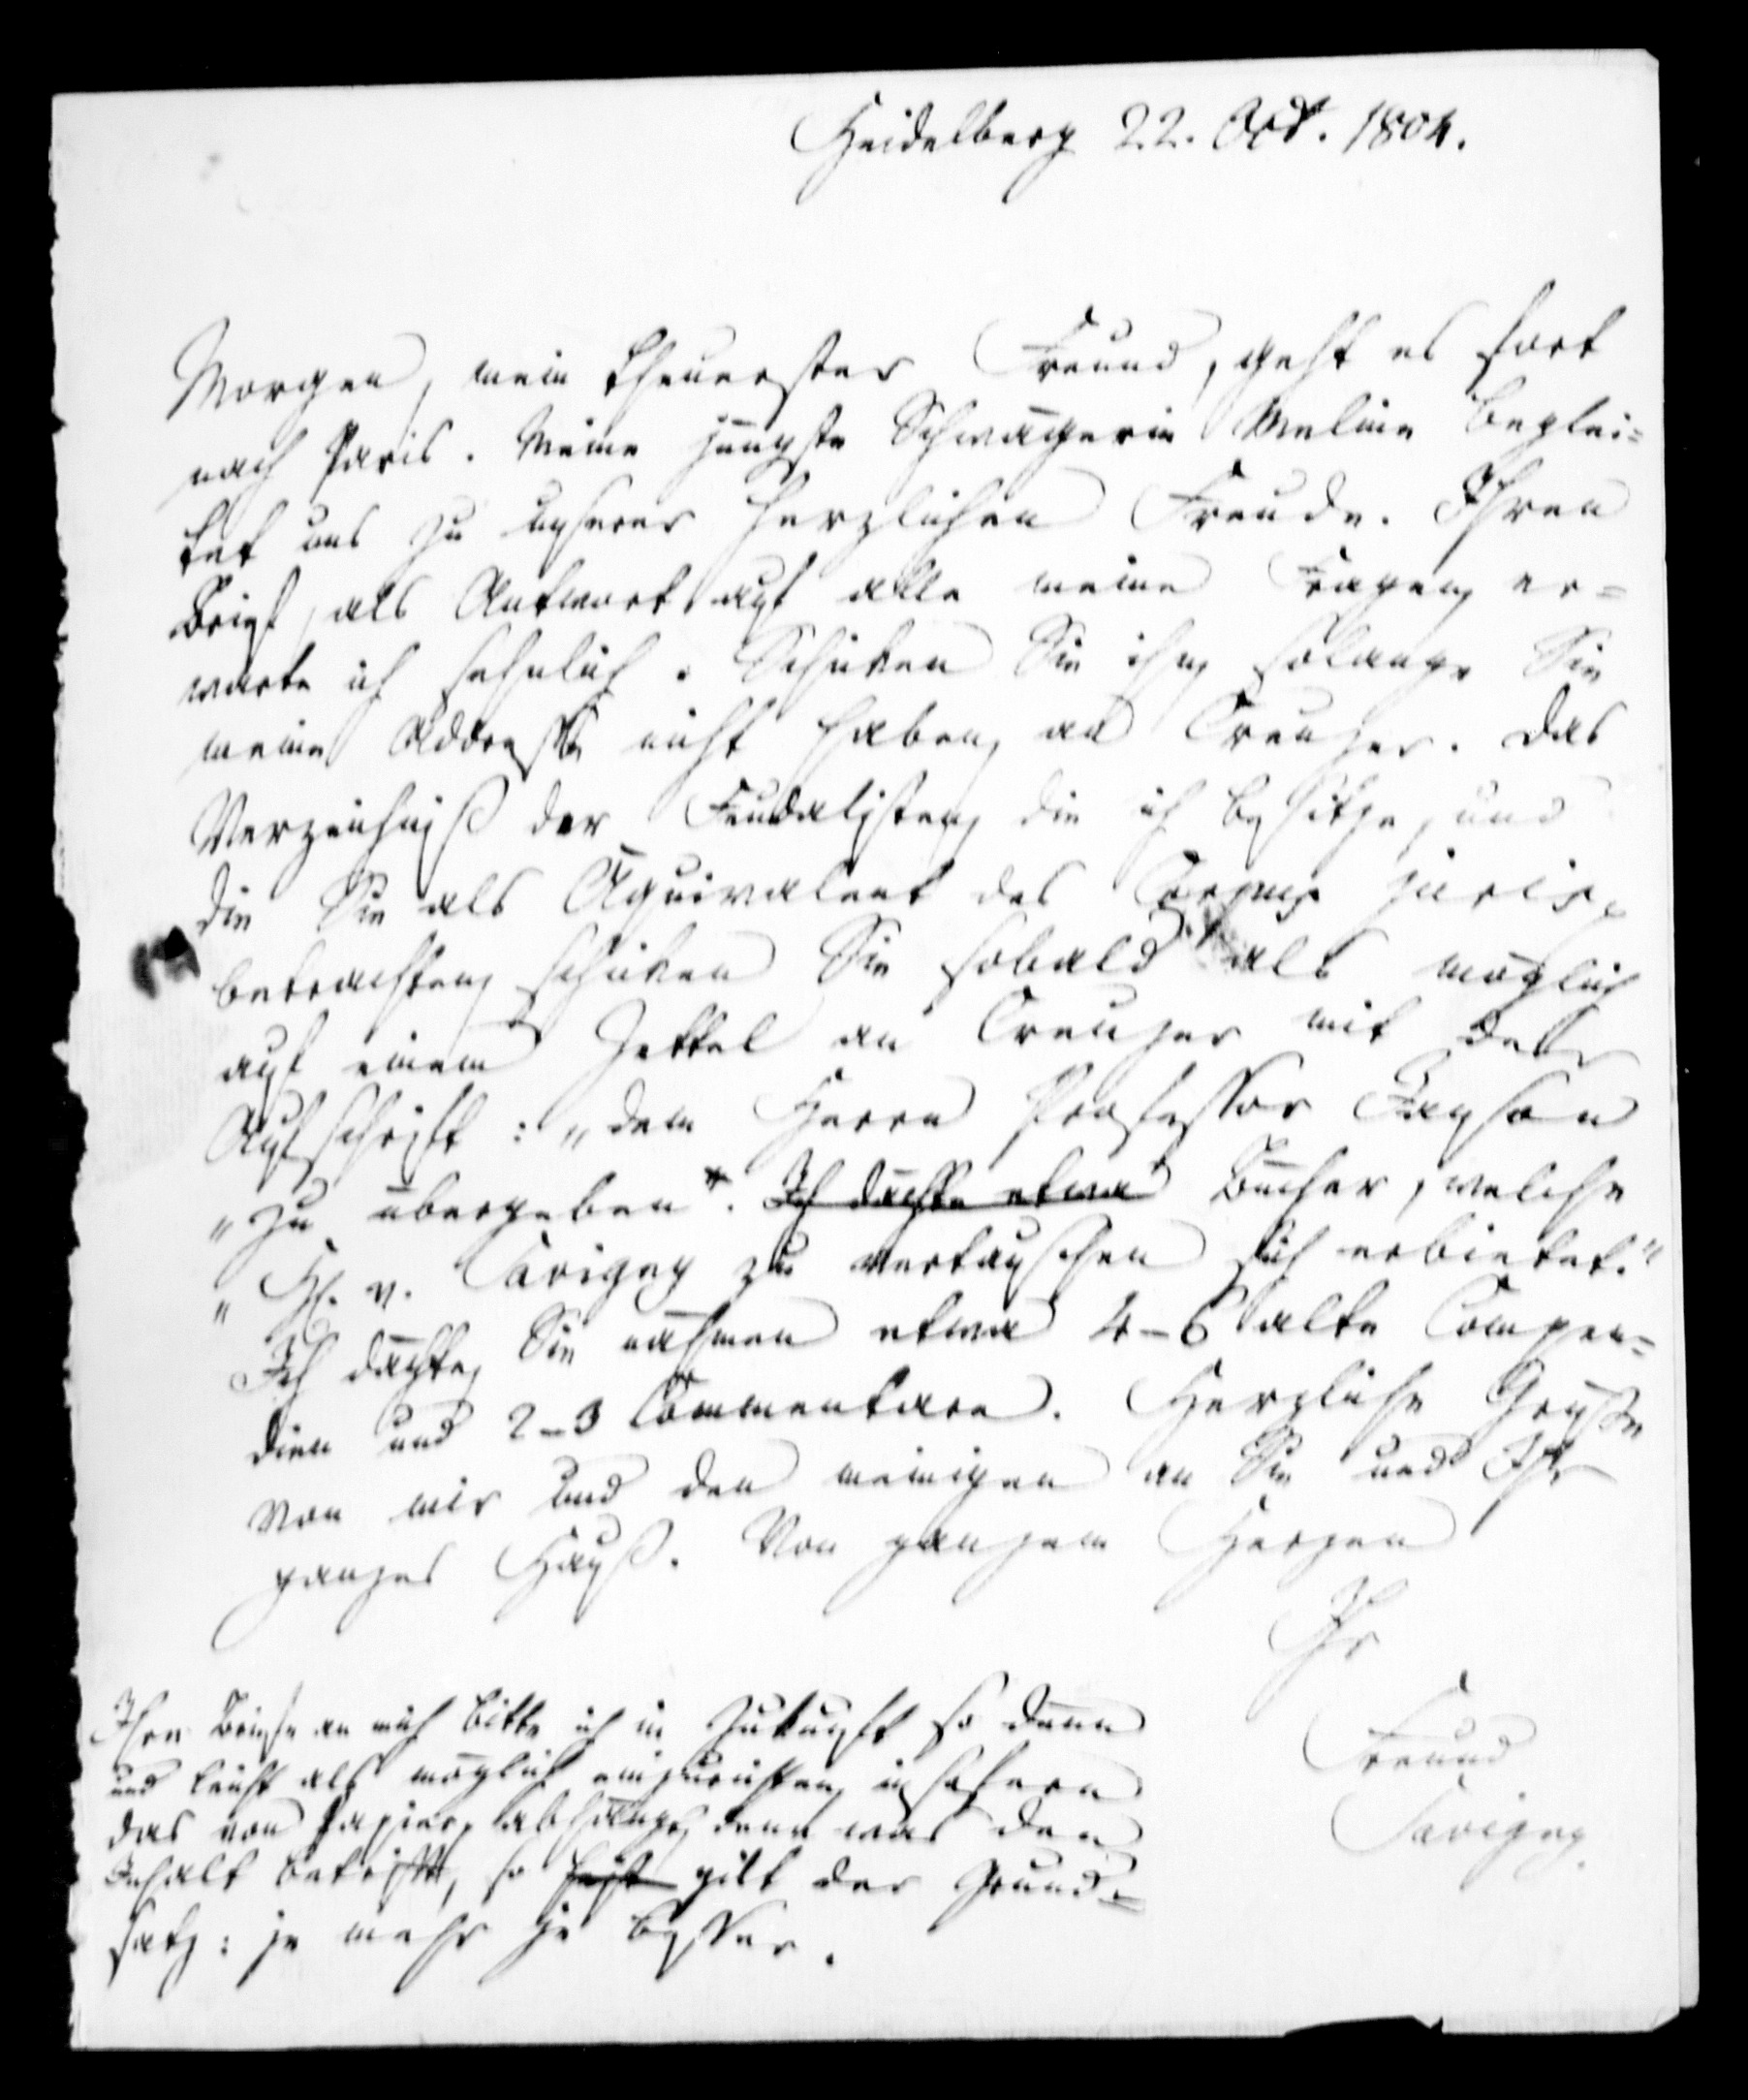 Heidelberg 22. Oct. 1804.
Morgen, mein theuerster Freund, geht es fort
nach Paris. Meine jüngste Schwägerin Meline beglei=
tet uns zu unserer herzlichen Freude. Ihren
Brief, als Antwort auf alle meine Fragen, er=
warte ich sehnlich. Schicken Sie ihn, solange Sie
meine Addresse nicht haben, an Creuzer. Das
Verzeichniß der Feudalisten, die ich besitze, und
die Sie als Äquivalent des Corpus juris
betrachten, schicken Sie sobald als möglich
auf einem Zettel an Creuzer mit der
Aufschrift: „dem Herrn Professor
„zu übergeben. Ich dächte etwa Bücher, welche
„H. v. Savigny zu vertauschen sich erbietet."
Ich dächte, Sie nähmen etwa 4-6 alte Compen=
dien und 2-3 Commentare. Herzliche Grüße
von mir und den meinigen an Sie und Ihr
ganzes Hauß. Von ganzem Herzen
Ihr
Freund
Savigny.
Ihre Briefe an mich bitte ich in Zukunft so dünn
und leicht als möglich einzurichten, insofern
das vom Papier abhängt, denn was den
Inhalt betrifft, so gilt der Grund=
satz: je mehr je besser.